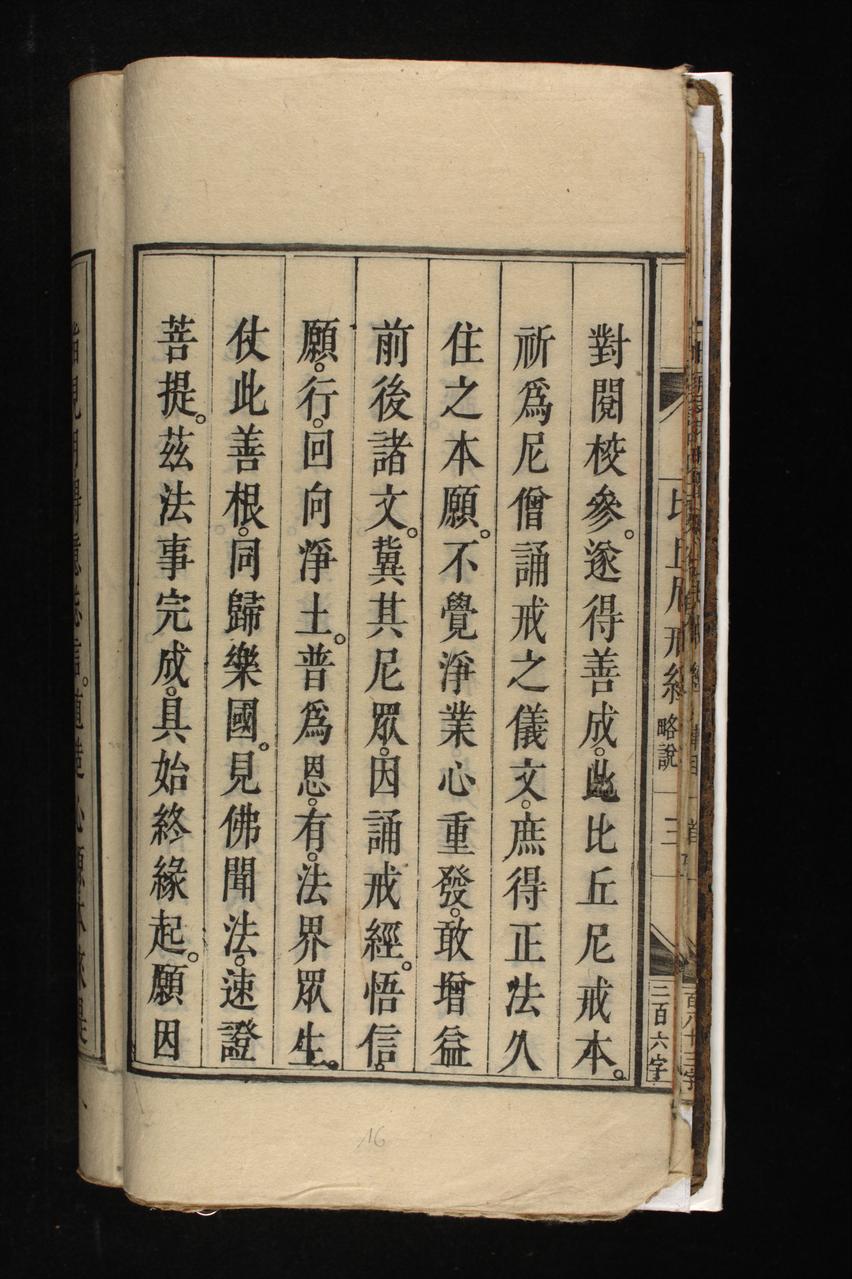 比丘尼戒經 略說 三
三百六字
對閱校參。遂得善成。此比丘尼戒本。
祈爲尼僧誦戒之儀文。庶得正法久
住之本願。不覺淨業心重發。敢增益
前後諸文。冀其尼眾。因誦戒經。悟信。
願。行。回向淨土。普爲恩。有。法界眾生。
仗此善根。同歸樂國。見佛聞法。速證
菩提。茲法事完成。具始終緣起。願因
16